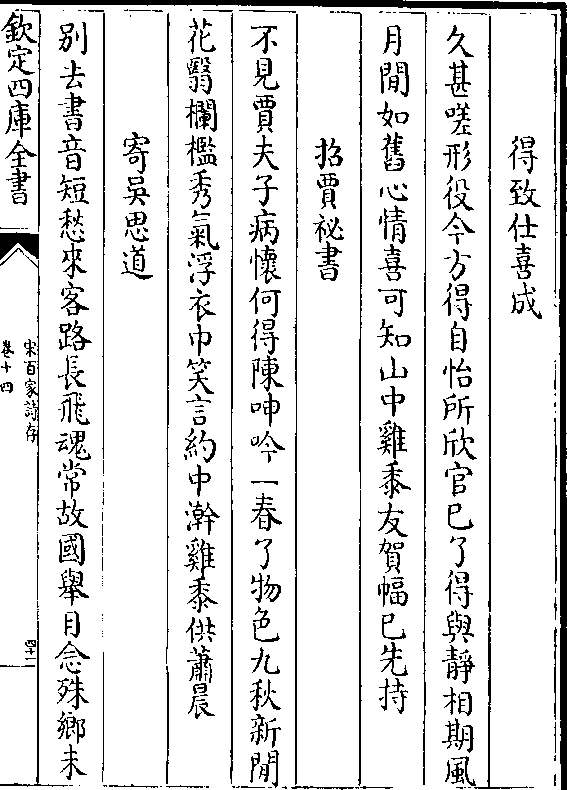 得致仕喜成
久甚嗟形役今方得自怡所欣官已了得與靜相期風
月閒如舊心情喜可知山中雞黍友賀幅已先持
招賈祕書
不見賈夫子病懷何得陳呻吟一春了物色九秋新閒
花翳欄檻秀氣浮衣巾笑言約中澣雞黍供蕭晨
寄吳思道
別去書音短愁來客路長飛魂常故國舉目念殊鄉未
欽定四庫全書
宋百家詩存
卷十四
四十二